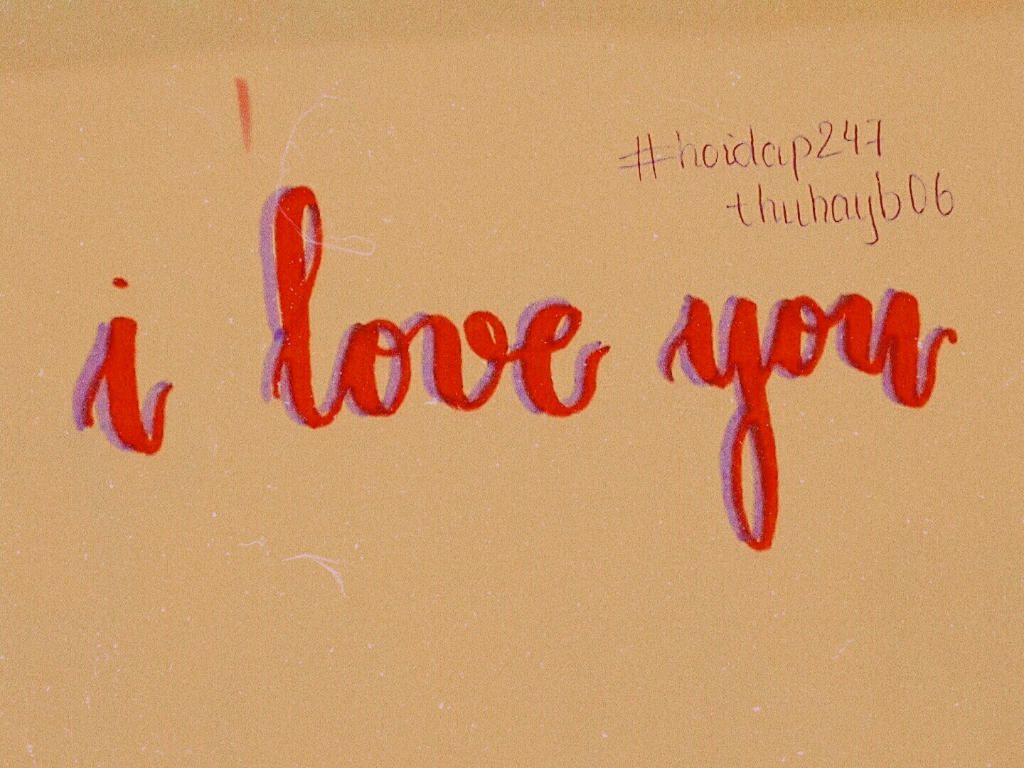 #hoidap247
thuhayb06
i love you